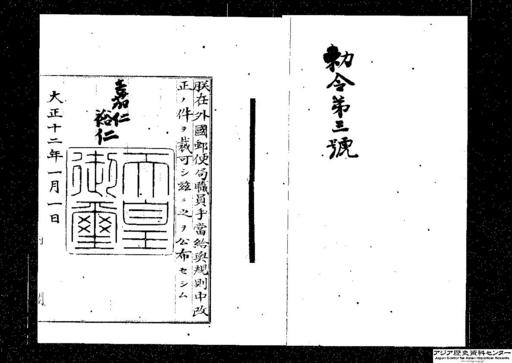 勅令第三號
朕在外國郵便局職員手當給與規則中改
正ノ件ヲ裁可シ茲ニ之ヲ公布セシム
嘉仁
裕仁
天皇御璽
大正十二年一月一日
アジア歴史資料センター
Japan Center for Asian Historical Records